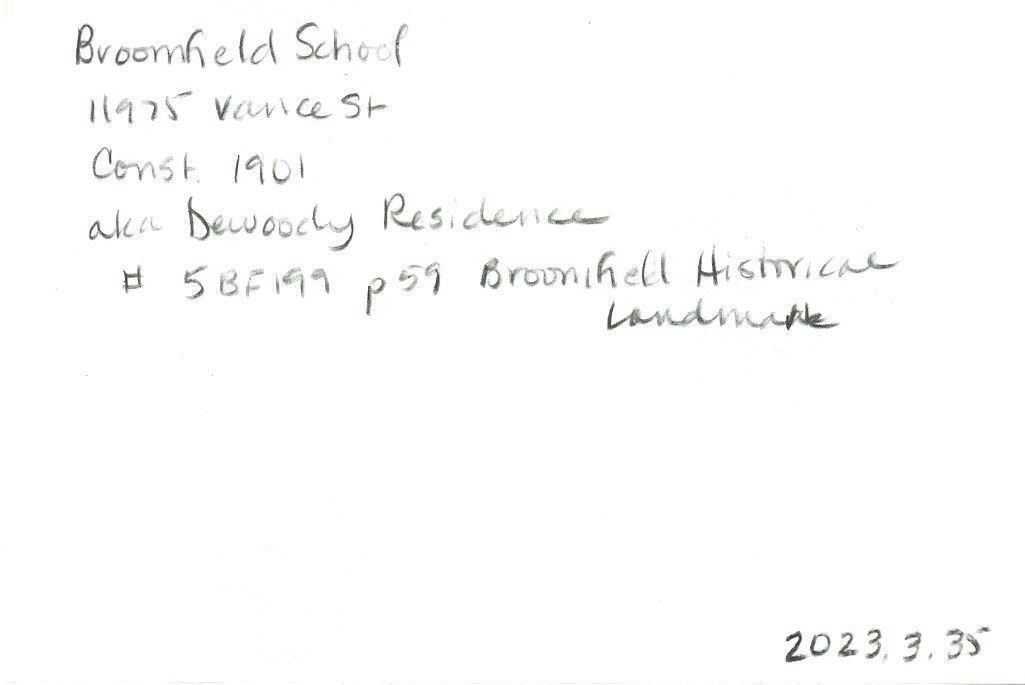 Broomfield School
11975 Vance St
Const. 1901
aka Dewoody Residence
# 5BF199 p59 Broomfield Historical
Landmark
2023.3.35